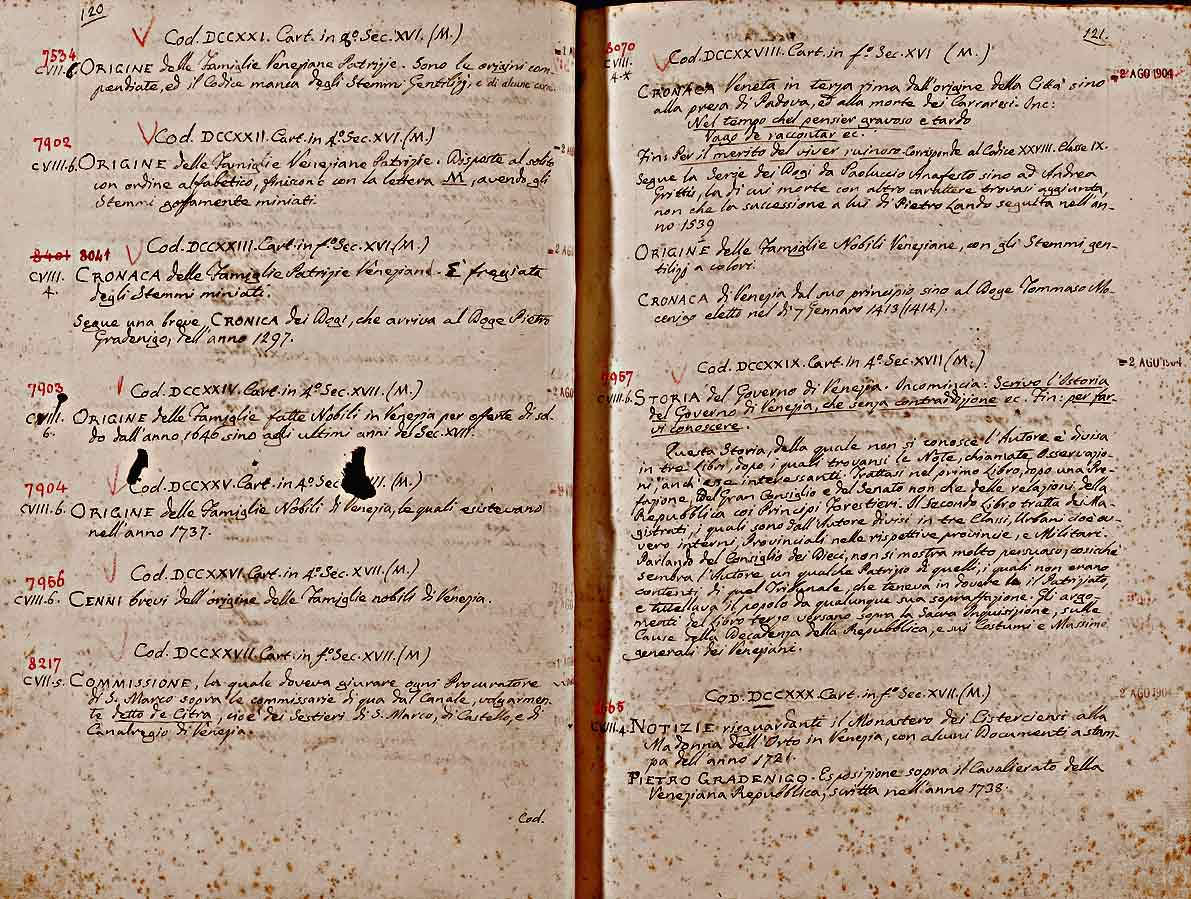 120
Cod. DCCXXI. Cart. in 4.º Sec. XVI. (M.)
7534
CVII.6 ORIGINE delle Famiglie Veneziane Patrizie. Sono le origini com-
pendiate, ed il Codice manca degli Stemmi Gentilizj, e di
7902
Cod. DCCXXII. Cart. in 4.º Sec. XVI. (M.)
CVIII.6. ORIGINE delle Famiglie Veneziane Patrizie. Disposte al solito
con ordine alfabetico, finiscono con la lettera M, avendo gli
Stemmi goffamente miniati.
8401 8041
Cod. DCCXXIII. Cart. in fº. Sec. XVI. (M.)
CVIII.
4.
CRONACA delle Famiglie Patrizie Veneziane. È fregiata
degli Stemmi miniati.
Segue una breve CRONICA dei Dogi, che arriva al Doge Pietro
Gradenigo, dell'anno 1297.
7903
Cod. DCCXXIV. Cart. in 4.º Sec. XVII. (M.)
CVIII.
6.
ORIGINE delle Famiglie fatte Nobili in Venezia per offerte di sol-
do dall'anno 1646 sino agli ultimi anni del Sec. XVII.
7904
Cod. DCCXXV. Cart. in 4º Sec. II. (M.)
CVIII.6. ORIGINE delle Famiglie Nobili di Venezia, le quali esistevano
nell'anno 1737.
7956
Cod. DCCXXVI. Cart. in 4º. Sec. XVII. (M.)
CVIII.6. CENNI brevi dell'origine delle Famiglie nobili di Venezia.
8217
Cod. DCCXXVII. Cart. in fº. Sec. XVII. (M)
CVII.5. COMMISSIONE, la quale doveva giurare ogni Procuratore
di S. Marco sopra le commissarie di qua dal Canale, volgarmen-
te detto de Citra, cioè dei Sestieri di S. Marco, di Castello, e di
Canalregio di Venezia.
Cod.
121.
8070
Cod. DCCXXVIII. Cart. in fº. Sec. XVI (M.)
CVIII.
4.*
-2 AGO 1904
CRONACA Veneta in terza rima dall'origine della Città sino
alla presa di Padova, ed alla morte dei Carraresi. Inc:
Nel tempo chel pensier gravoso e tardo
Vago de raccontar ec.
Fin: Per il merito del viver ruinoso. Corrisponde al Codice XXVIII. Classe IX.
Segue la Serie dei Dogi da Paoluccio Anafesto sino ad Andrea
Gritti, la di cui morte con altro carattere trovasi aggiunta,
non che la successione a lui di Pietro Lando seguita nell'an-
no 1539
ORIGINE delle Famiglie Nobili Veneziane, con gli Stemmi gen-
tilizj a colori.
CRONACA di Venezia dal suo principio sino al Doge Tommaso Mo-
cenigo eletto nel dì 7 Gennaro 1413 (1414).
7957
Cod. DCCXXIX. Cart. in 4º. Sec. XVII (M.)
-2 AGO 1904
CVIII.6. STORIA del Governo di Venezia. Incomincia: Scrivo l'Istoria
del Governo di Venezia, che senza contraddizione ec. Fin: per far-
vi conoscere.
Questa Storia, della quale non si conosce l'Autore è divisa
in tre Libri, dopo i quali trovansi le Note, chiamate Osservazio-
ni, anch'esse interessanti. Trattasi nel primo Libro, dopo una Pre-
fazione, del Gran Consiglio e del Senato non che delle relazioni della
Repubblica coi Principi Forestieri. Il Secondo Libro tratta dei Ma-
gistrati, i quali sono dall'Autore divisi in tre Classi, Urbani cioè ov-
vero interni, Provinciali nelle rispettive provincie, e Militari.
Parlando del Consiglio dei Dieci, non si mostra molto persuaso, cosichè
sembra l'Autore un qualche Patrizio di quelli, i quali non erano
contenti di quel Tribunale, che teneva in dovere il Patriziato,
e tutellava il popolo da qualunque sua sopraffazione. Gli argo-
menti del Libro terzo versano sopra la Sacra Inquisizione, sulle
Cause della Decadenza della Repubblica, e sui Costumi e Massime
generali dei Veneziani.
COD. DCCXXX. Cart. in fº. Sec. XVII. (M.)
-2 AGO 1904
CVIII.4. NOTIZIE risguardanti il Monastero dei Cisterciensi alla
Madonna dell'Orto in Venezia, con alcuni Documenti a stam-
pa dell'anno 1721.
PIETRO GRADENIGO. Esposizione sopra il Cavalierato della
Veneziana Repubblica, scritta nell'anno 1738.